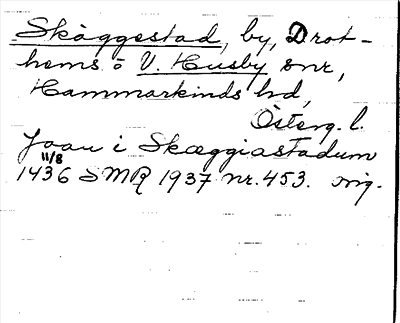 Skäggestad, by, Drot-
hems o V. Husby snr,
Hammarkinds hd,
Österg. l.
Joan i Skæggiastadum
11/8
1436 SMR 1937 nr. 453. orig.